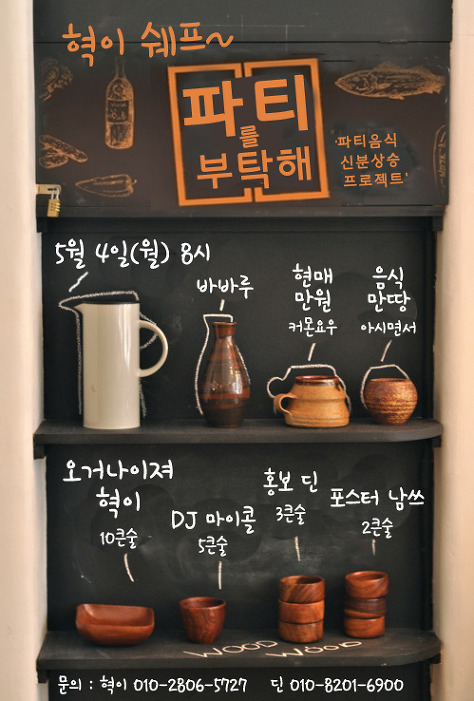 혁이 쉐프~
파티
를
부탁해
'파티음식
신분상승
프로젝트'
5월 4일(월) 8시
바바루
현매
만원
커몬요우
음식
만땅
아시면서
오거나이져
혁이
10큰술
DJ 마이콜
5큰술
홍보 딘
3큰술
포스터 남쓰
2큰술
WOOD WOOD
문의 : 혁이 010-2806-5727 딘 010-8201-6900